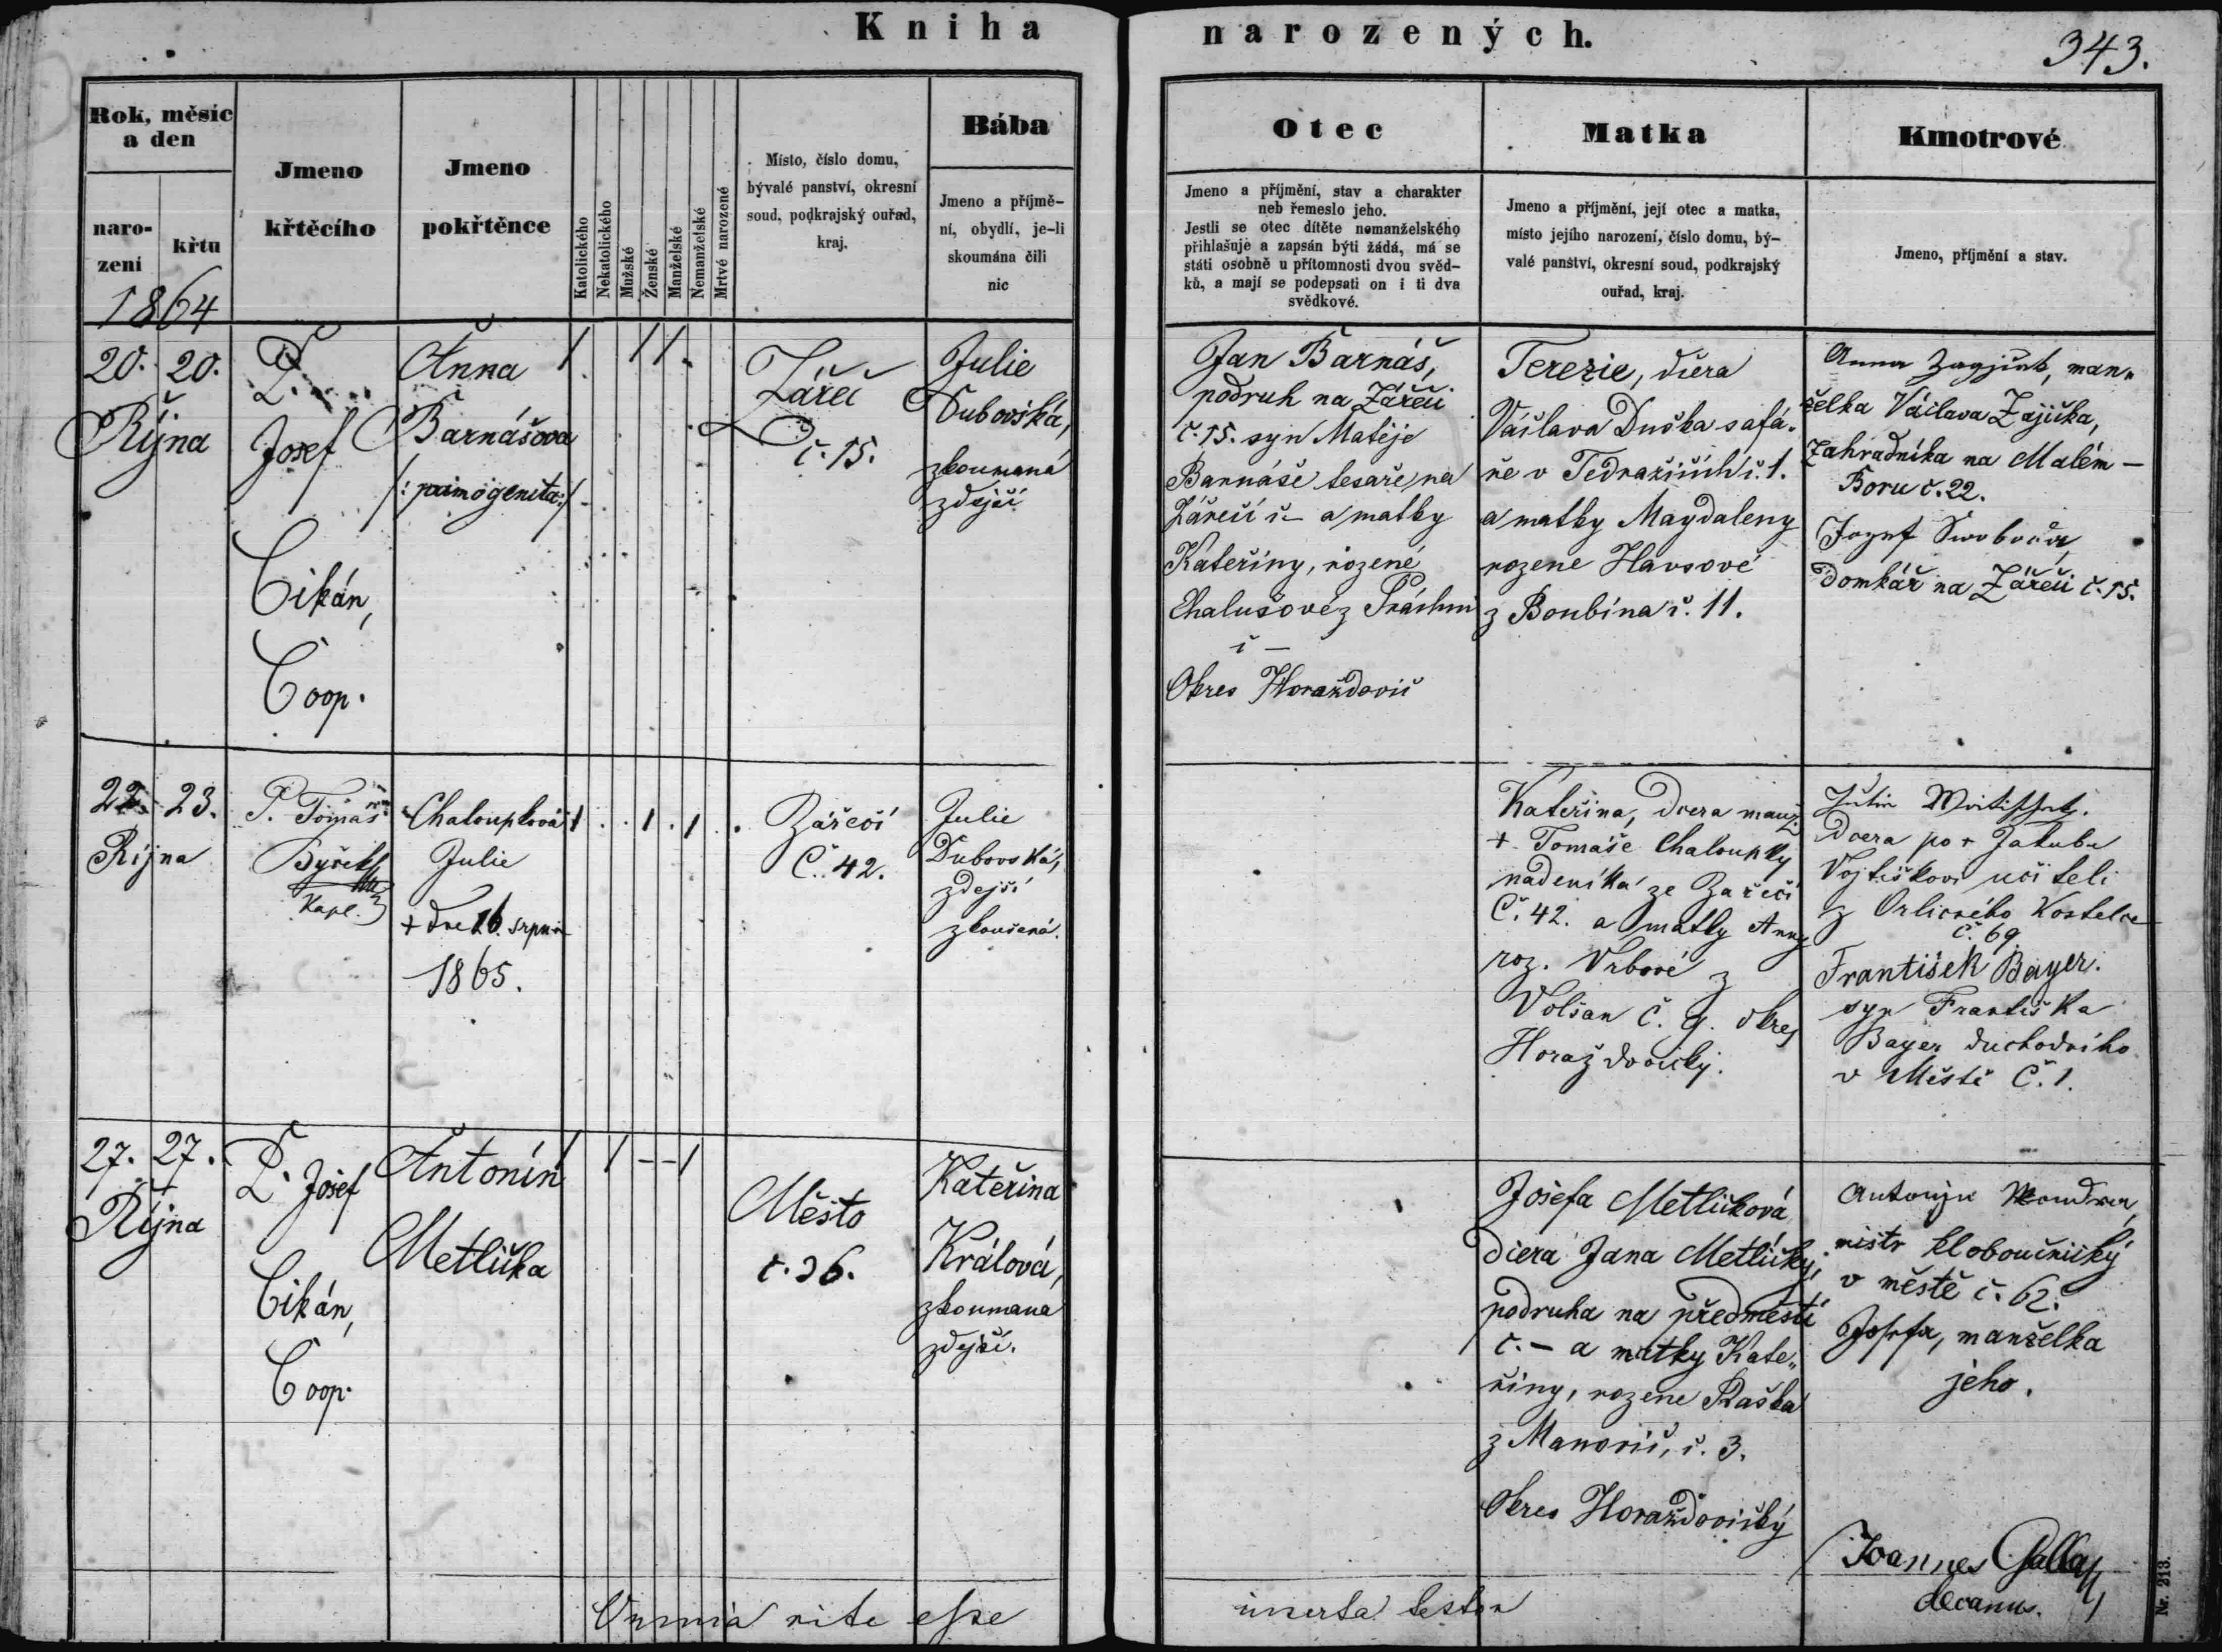 Kniha narozených.
343.
Rok, měsíc
a den
naro-
zení
křtu
1864
Jmeno
křtěcího
Jmeno
pokřtěnce
Katolického
Nekatolického
Mužské
Ženské
Manželské
Nemanželské
Mrtvé narozené
Místo, číslo domu,
bývalé panství, okresní
soud, podkrajský ouřad,
kraj.
Bába
Jmeno a příjmě-
ní, obydlí, je-li
skoumána čili
nic
Otec
Jmeno a příjmění, stav a charakter
neb řemeslo jeho.
Jestli se otec dítěte nemanželského
přihlašuje a zapsán býti žádá, má se
státi osobně u přítomnosti dvou svěd-
ků, a mají se podepsati on i ti dva
svědkové.
Matka
Jmeno a příjmění, její otec a matka,
místo jejího narození, číslo domu, bý-
valé panství, okresní soud, podkrajský
ouřad, kraj.
Kmotrové
Jmeno, příjmění a stav.
20. 20.
Října
P.
Josef
Cikán,
Coop.
Anna
Barnášova
/: primogenita :/
Zářečí
č. 15.
Julie
Dubovská,
zkoumaná
zdejší
Jan Barnáš,
podruh na Zářečí
č. 15. syn Matěje
Barnáše tesaře na
Zářečí č – a matky
Kateřiny, rozené
Chalušové z Práchni
č –
Okres Horažďovič
Terezie, dčera
Václava Duška šafá-
ře v Tedražičích č. 1.
a matky Magdaleny
rozene Havsové
z Boubína č. 11.
Anna, man-
želka Václava Zajička,
Zahradníka na Malém –
Boru č. 22.
Josef Swoboda,
domkář na Zářečí č. 15.
22. 23.
Října
P. Tomáš
Kapl.
Chaloupková
Julie
+ dne 16. srpna
1865.
Zářečí
Č. 42.
Julie
Dubovská,
zdejší
zkoušená.
Kateřina, dcera manž.
+ Tomáše Chaloupky
nadeníka ze Zářečí
Č. 42. a matky Anny
roz. Vrbové z
Volšan č. 9. okres
Horažďovický.
Julie
dcera po + Jakubu
Vojtiškovi učiteli
z Orlického Kostelce
č. 69
František Bayer.
syn Františka
Bayer duchodního
v Městě Č. 1.
27. 27.
Října
P. Josef
Cikán,
Coop.
Antonín
Metlička
Město
č. 36.
Kateřina
Králová,
zkoumaná
zdejší.
Josefa Metličková
dčera Jana Metličky,
podruha na předměstí
č. – a matky Kate-
řiny, rozene Raška
z Manovic, č. 3.
Okres Horažďovický
Antonín
mistr kloboučnický
v městě č. 62.
Josefa, manželka
jeho.
Omnia rite esse inserta testor
Joannes Gallas
decanus.
Nr. 213.